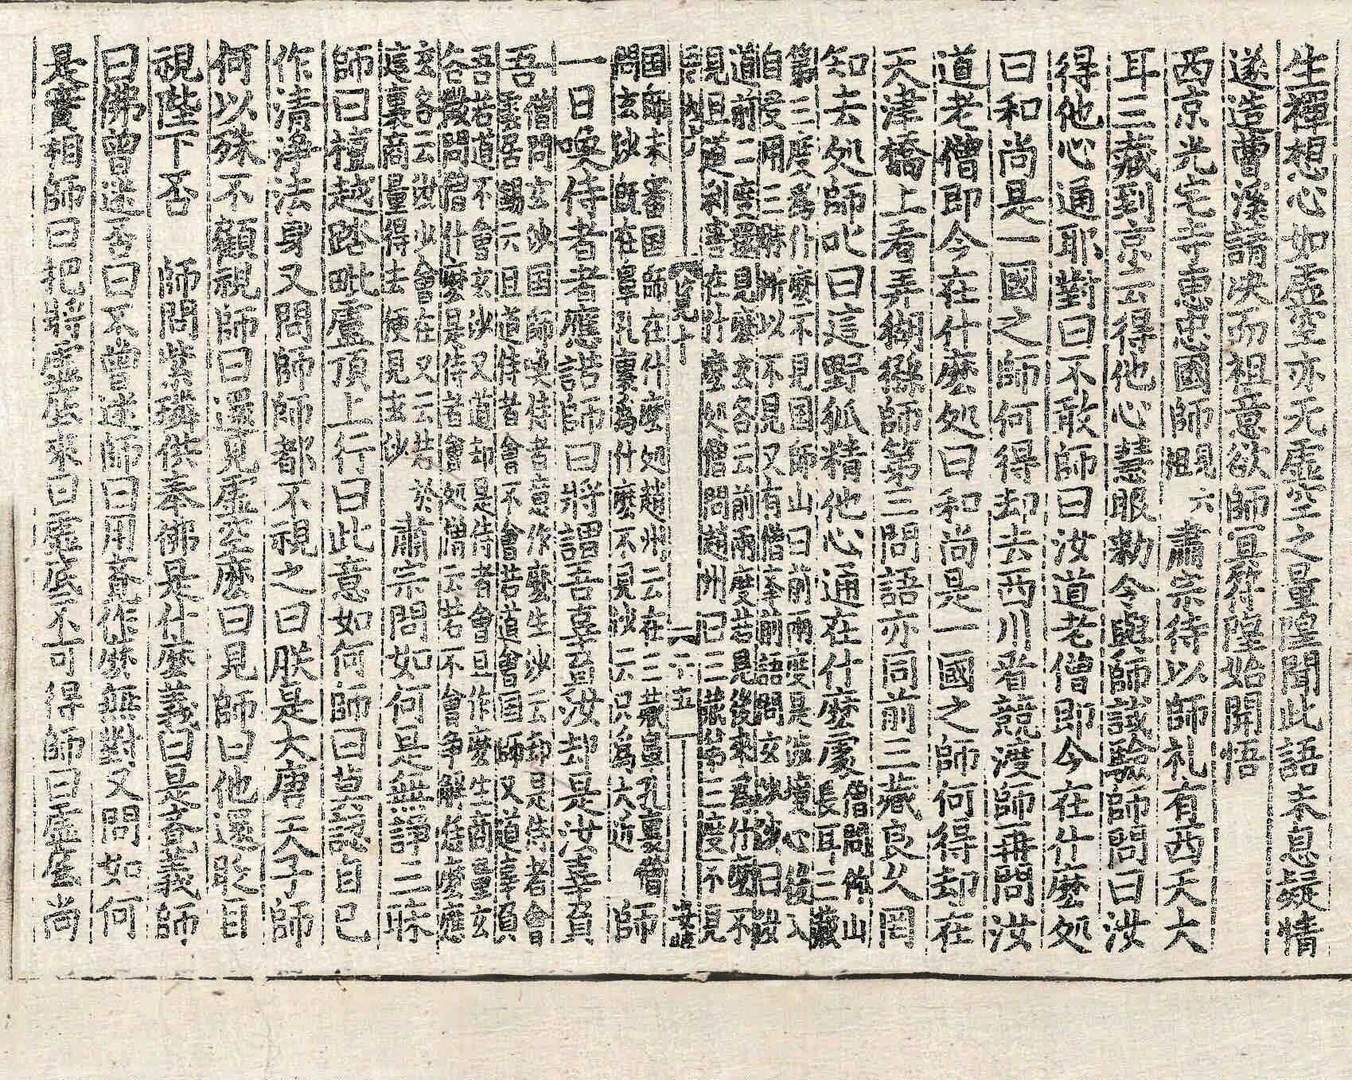 生禪想心如虛空亦无虛空之量隍聞此語未息疑情
遂造曹溪請决而祖意欲師冥符隍始開悟
西京光宅寺惠忠國師嗣六祖 肅宗待以師礼有西天大
耳三藏到京云得他心慧眼勑令與師試驗師問曰汝
得他心通耶對曰不敢師曰汝道老僧即今在什麽処
曰和尚是一國之師何得却去西川看競渡師再問汝
道老僧即今在什麽処曰和尚是一國之師何得却在
天津橋上看弄猢猻師第三問語亦同前三藏良久罔
知去処師叱曰這野狐精他心通在什麽處
僧問仰山長耳三藏
第三度爲什麽不見国師山曰前兩度是涉境心後入
自受用三昧所以不見又有僧擧前語問玄沙沙曰汝
道前二度還見麽玄各云前兩度若見後來爲什麽不
見且道利害在什麽処僧問趙州曰三藏第三度不見
国師未審国師在什麽処趙州云在三藏鼻孔裏僧
問玄沙既在鼻孔裏爲什麽不見沙云只爲大近
師
一日喚侍者者應諾師曰將謂吾辜負汝却是汝辜負
吾
僧問玄沙国師喚侍者意作麽生沙云却是侍者會
雲居錫云且道侍者會不會若道會国師又道辜負
吾若道不會玄沙又道却是侍者會且作麽生商量玄
各徵問僧什麽是侍者會処僧云若不會争解恁麽應
玄各云汝少會在又云若於
這裏商量得去便見玄沙
肅宗問如何是無諍三昧
師曰檀越踏毗盧頂上行曰此意如何師曰莫認自己
作清淨法身又問師師都不視之曰朕是大唐天子師
何以殊不顧視師曰還見虛空麽曰見師曰他還眨目
視陛下否 師問紫璘供奉佛是什麽義曰是覺義師
曰佛曾迷否曰不曾迷師曰用覺作麽無對又問如何
是實相師曰把將虛底來曰虛底不可得師曰虛底尚